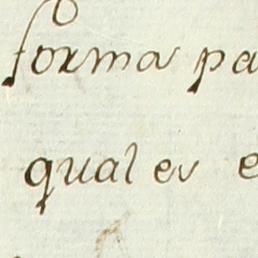 forma pa
qual es e